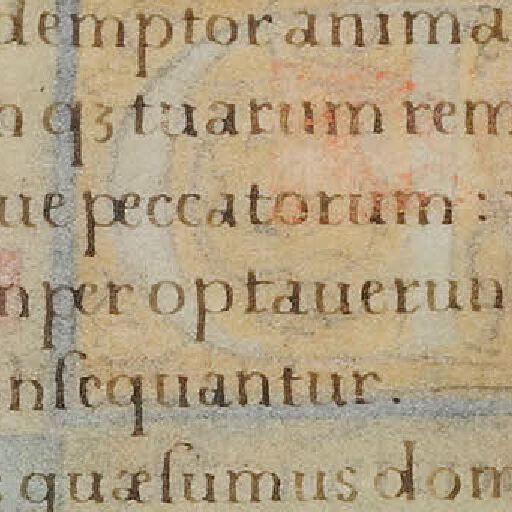 demptor anima
n qꝫ tuarum rem
ue peccatorum :
nper optauerun
nſequantur.
: quæſumus dom